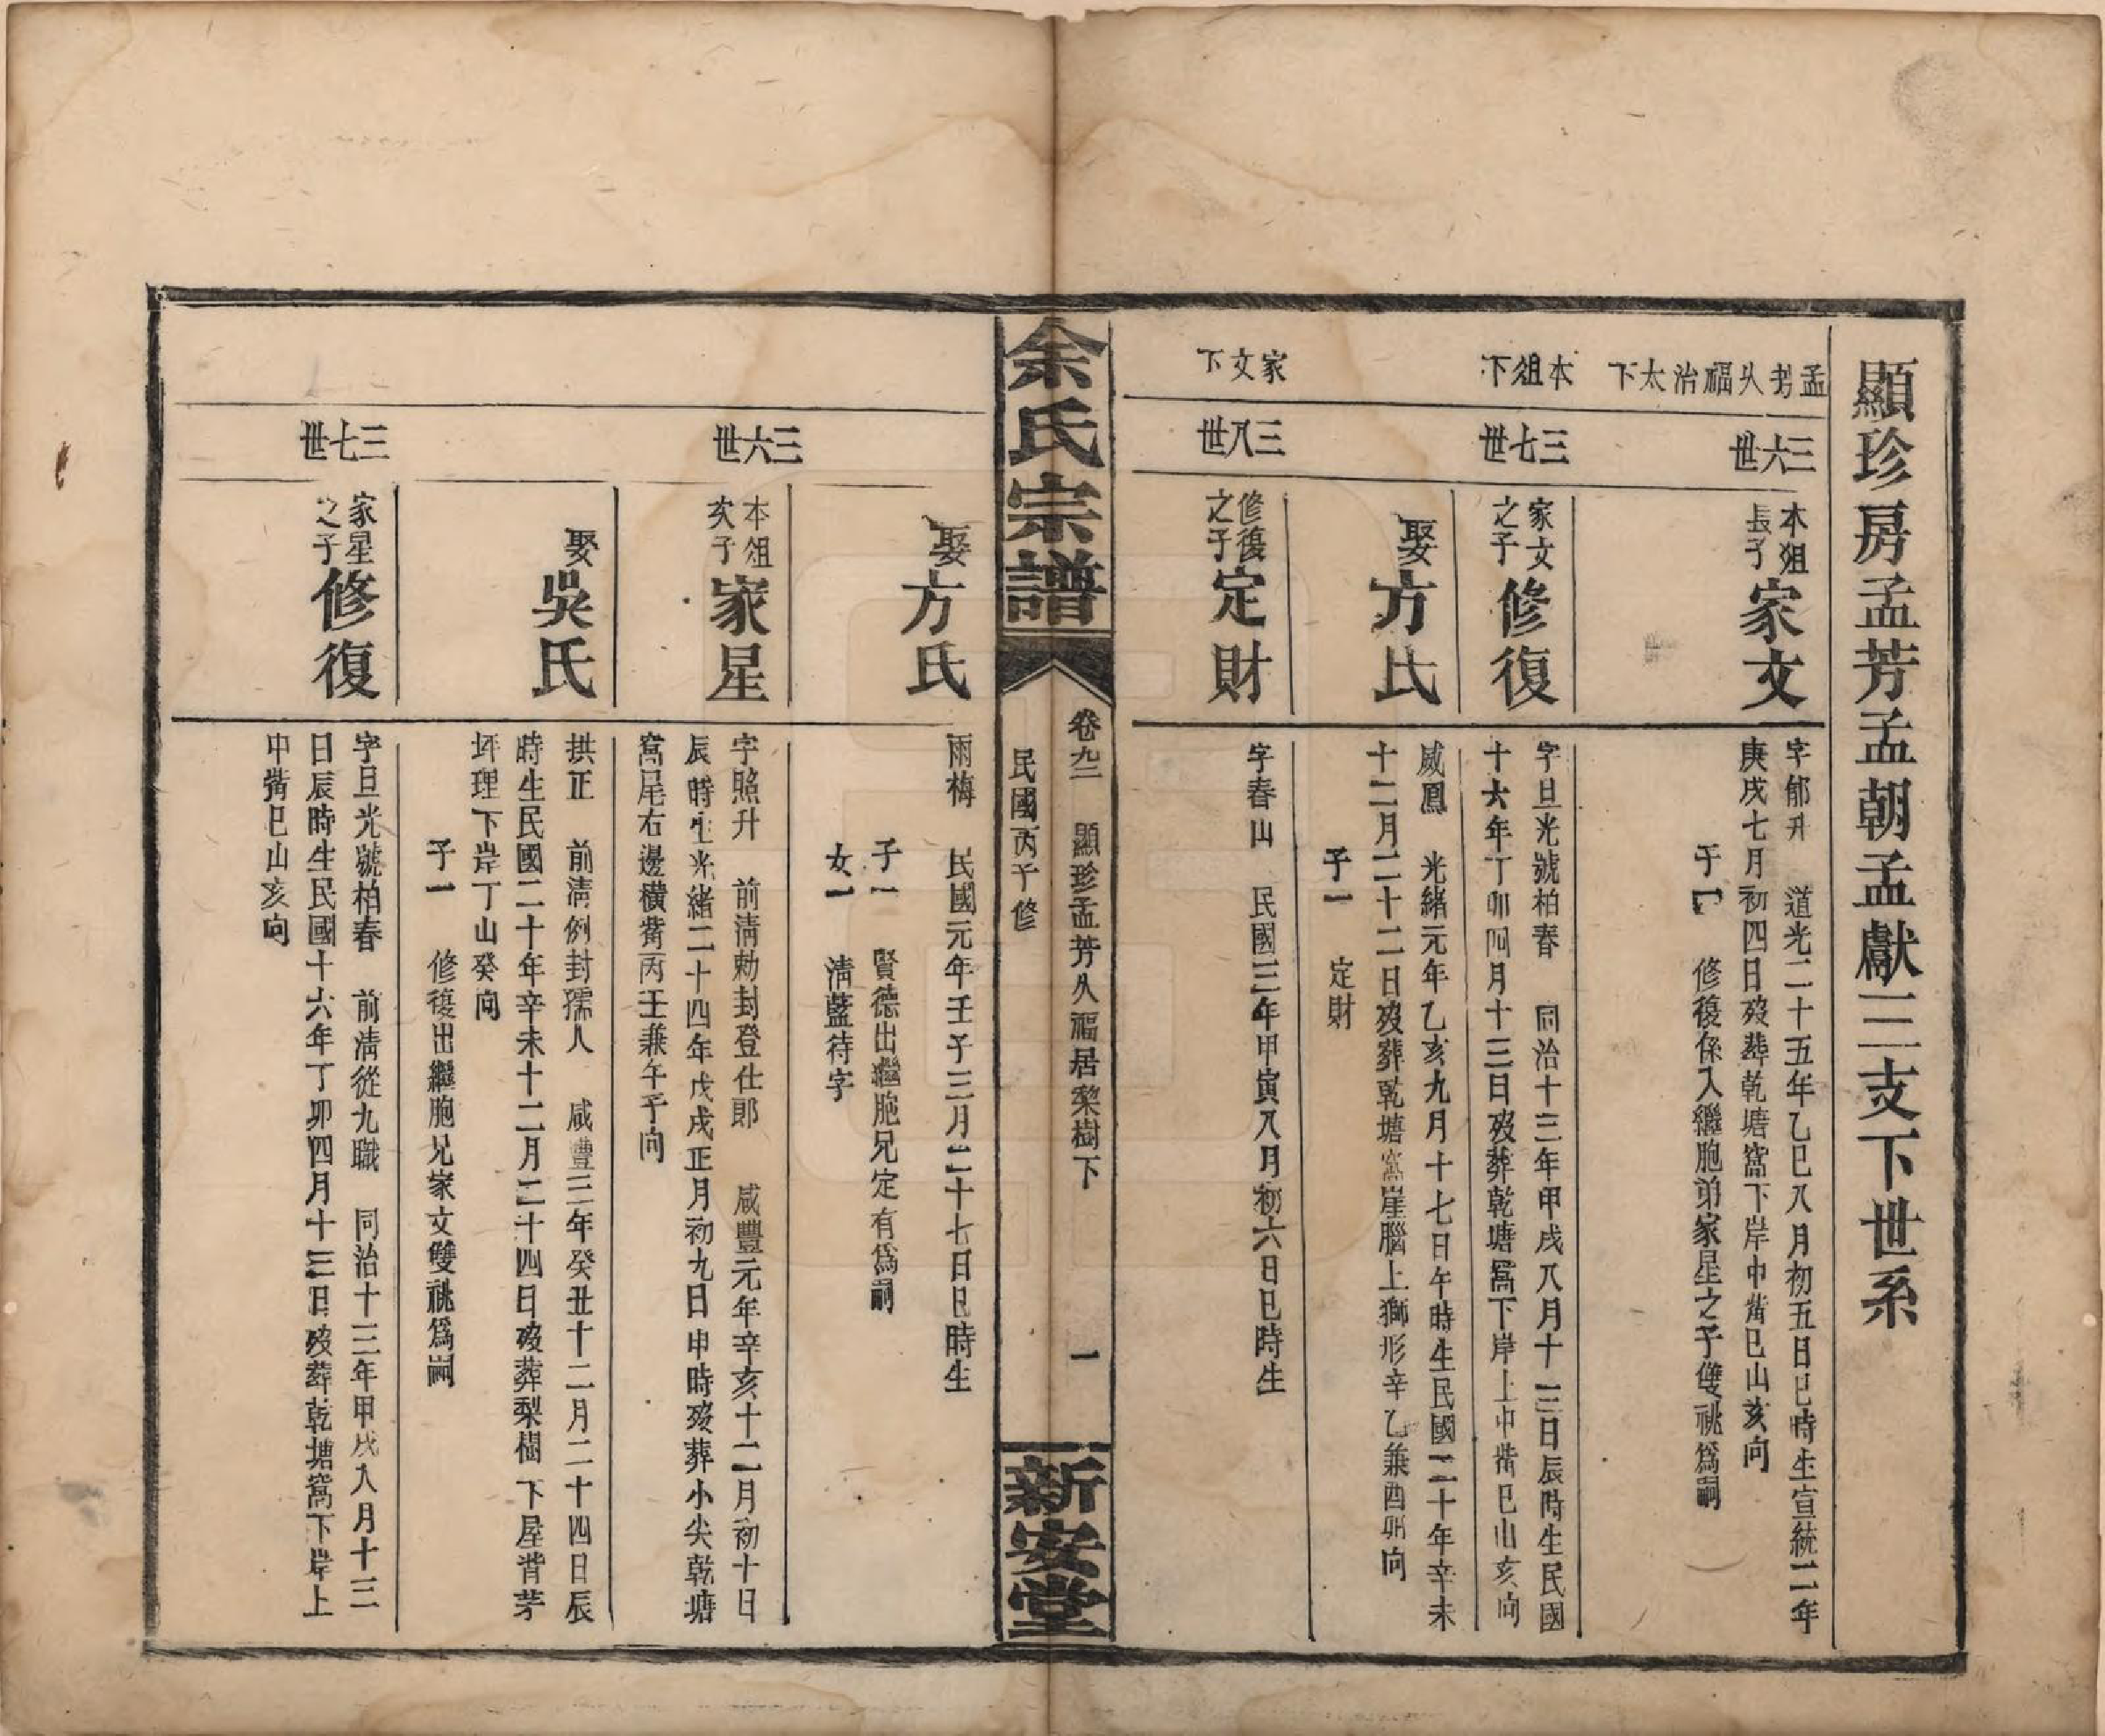 顯珍房孟芳孟朝孟獻三支下世系
孟芳久福治太下
三六世
本祖長子
家文
字郁升 道光二十五年乙巳八月初五日巳時生宣統二年
庚戌七月初四日歿葬乾塘窩下岸中嘴巳山亥向
子一 修復係入繼胞弟家星之子雙祧爲嗣
本祖下
三七世
家文之子
修復
字旦光號柏春 同治十三年甲戌八月十三日辰時生民國
十六年丁卯四月十三日歿葬乾塘窩下岸上中嘴巳山亥向
娶
方氏
威鳳 光緒元年乙亥九月十七日午時生民國二十年辛未
十二月二十二日歿葬乾塘窩崖腦上獅形辛乙兼酉卯向
子一 定財
家文下
三八世
修復之子
定財
字春山 民國三年甲寅八月初六日巳時生
余氏宗譜
卷九二 顯珍孟芳久福居棃樹下 一
民國丙子修
新安堂
娶
方氏
雨梅 民國元年壬子三月二十七日巳時生
子一 賢德出繼胞兄定有爲嗣
女一 清藍待字
三六世
本祖次子
家星
字照升 前清勅封登仕郎 咸豐元年辛亥十二月初十日
辰時生光緒二十四年戊戌正月初九日申時歿葬小尖乾塘
窩尾右邊橫嘴丙壬兼午子向
娶
吳氏
拱正 前清例封孺人 咸豐三年癸丑十二月二十四日辰
時生民國二十年辛未十二月二十四日歿葬梨樹下屋背茅
坪理下岸丁山癸向
子一 修復出繼胞兄家文雙祧爲嗣
三七世
家星之子
修復
字旦光號柏春 前清從九職 同治十三年甲戌八月十三
日辰時生民國十六年丁卯四月十三日歿葬乾塘窩下岸上
中嘴巳山亥向